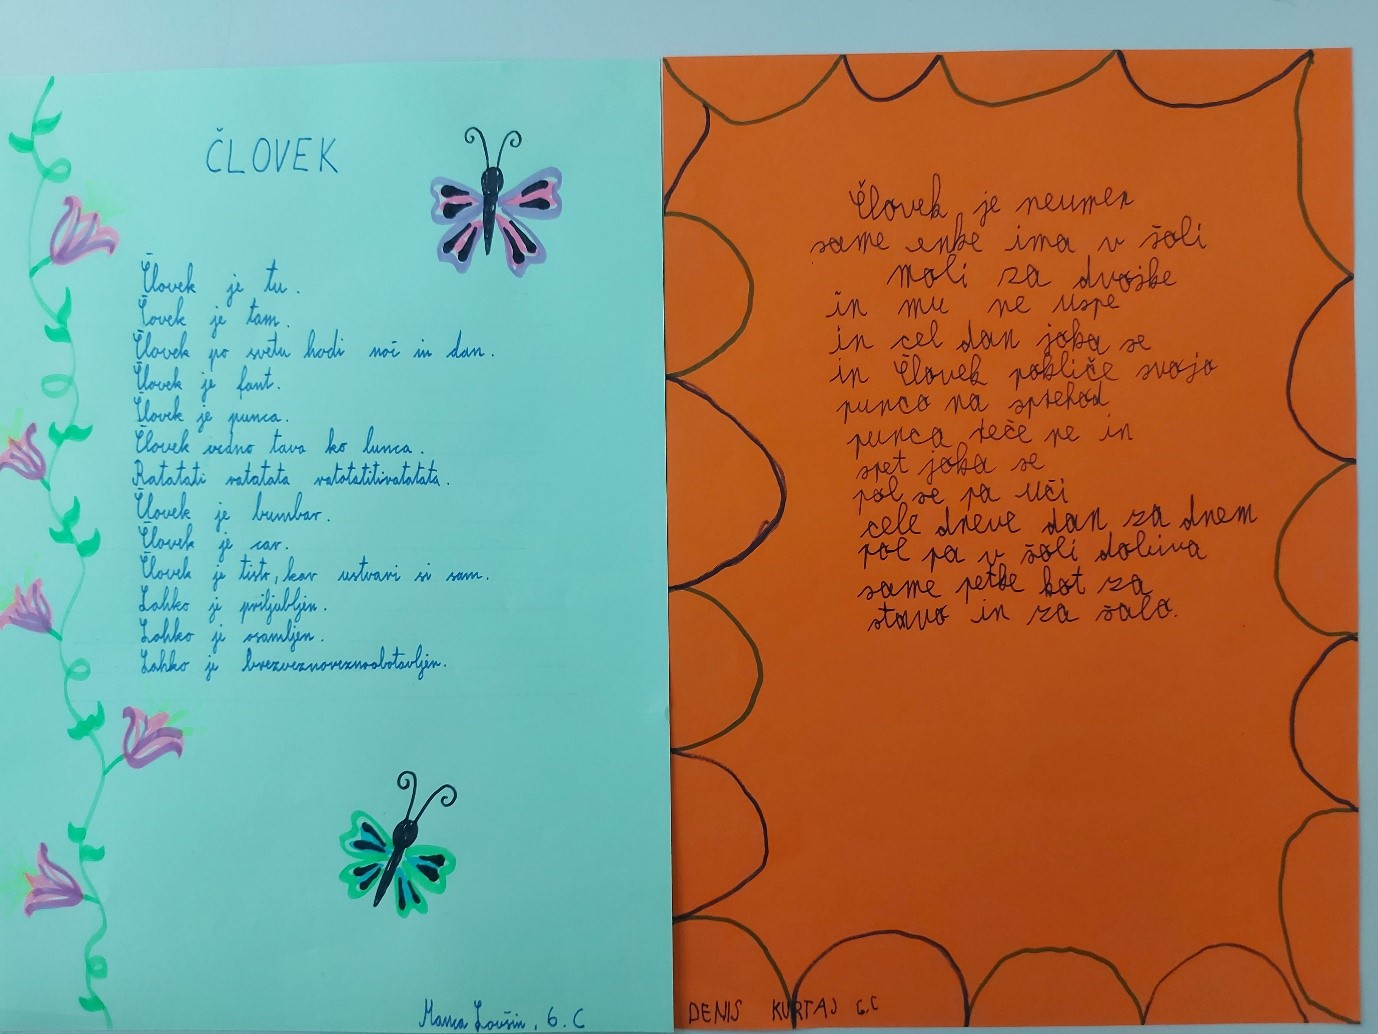 ČLOVEK
Človek je tu.
Čovek je tam.
Človek po svetu hodi noč in dan.
Človek je fant.
Človek je punca.
Človek vedno tava ko lunca.
Ratatati ratatata ratatatitiratatata.
Človek je bumbar.
Človek je car.
Človek je tisto, kar ustvari si sam.
Lahko je priljubljen.
Lahko je osamljen.
Lahko je
Manca Lovšin, 6. C
Človek je neumen
same enke ima v šoli
moli za dvojke
in mu ne uspe
in cel dan joka se
in Človek pokliče svojo
punco na sprehod
punca reče ne in
spet joka se
pol se pa uči
cele dneve dan za dnem
pol pa v šoli dobiva
same petke kot za
stavo in za šalo.
DENIS KURTAJ 6.C